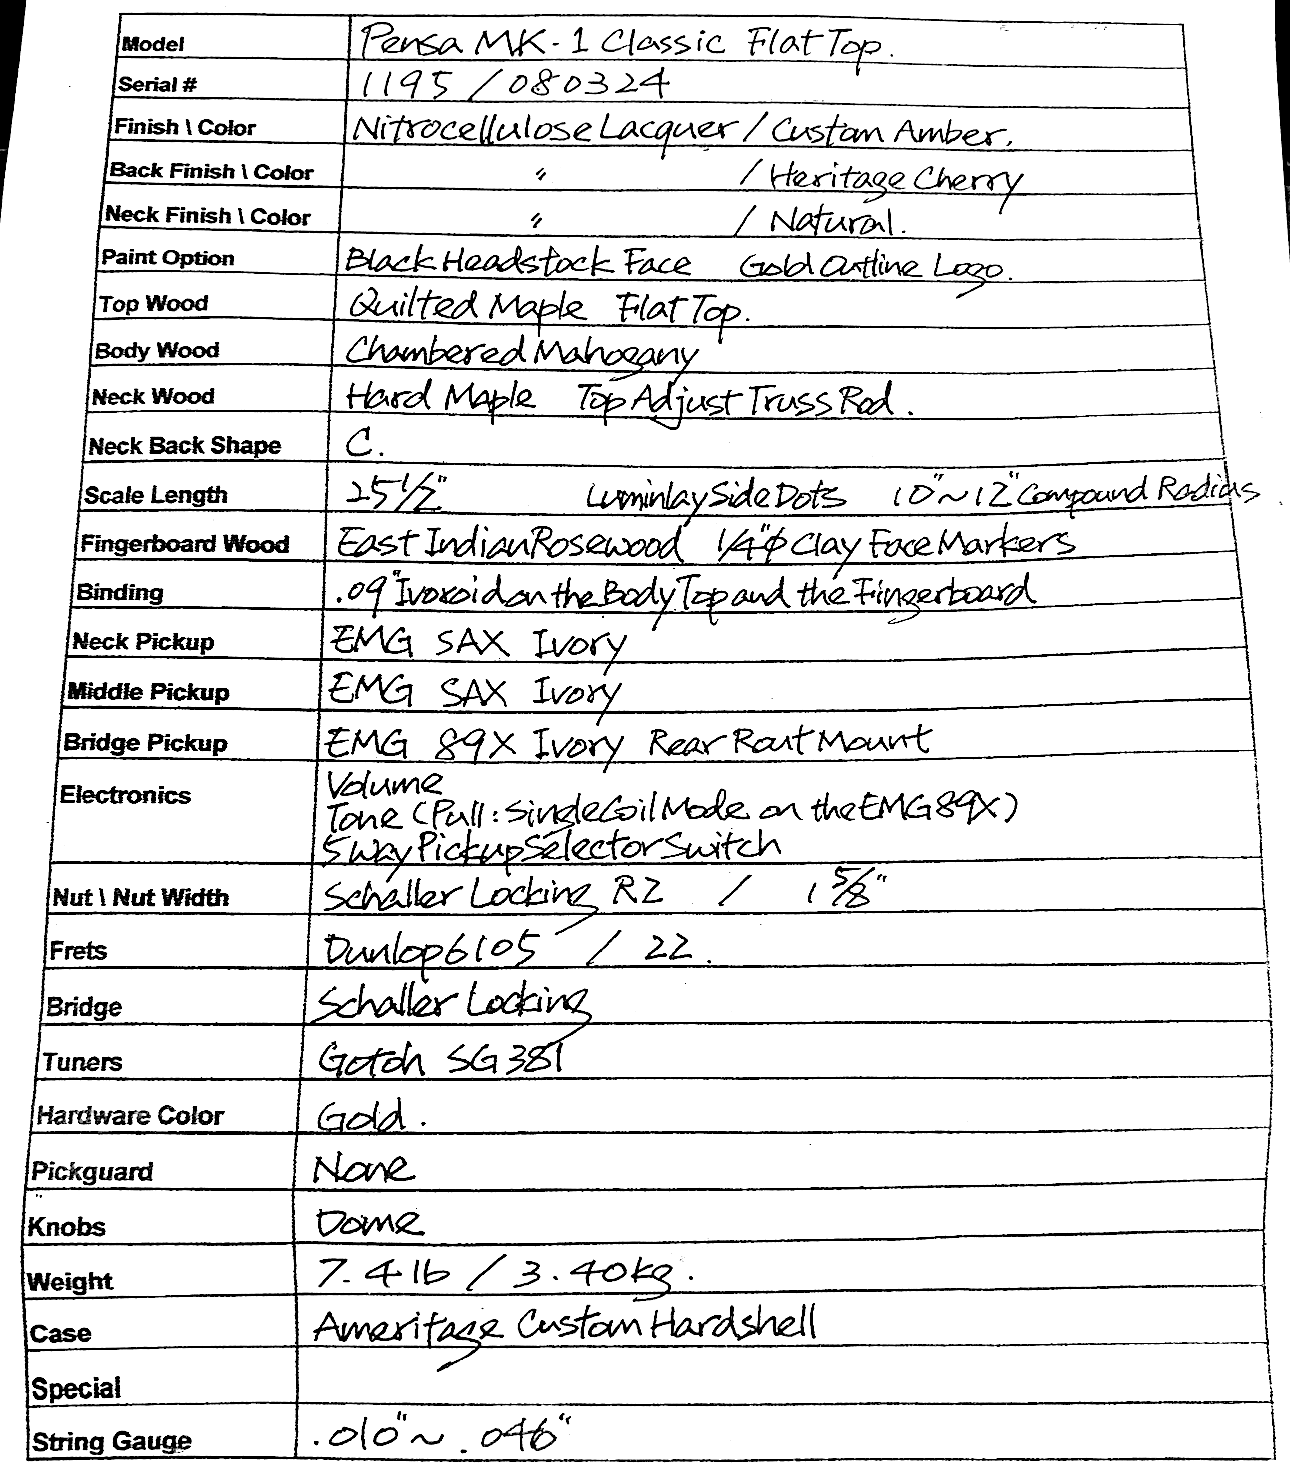 Model Pensa MK-1 Classic Flat Top.
Serial # 1195 / 080324
Finish \ Color Nitrocellulose Lacquer / Custom Amber.
Back Finish \ Color " / Heritage Cherry
Neck Finish \ Color " / Natural.
Paint Option Black Headstock Face Gold Outline Logo.
Top Wood Quilted Maple Flat Top.
Body Wood Chambered Mahogany
Neck Wood Hard Maple Top Adjust Truss Rod.
Neck Back Shape C.
Scale Length 25 1/2" Luminlay Side Dots 10"~12" Compound Radius
Fingerboard Wood East Indian Rosewood 1/4"φ Clay Face Markers
Binding .09" Ivoroid on the Body Top and the Fingerboard
Neck Pickup EMG SAX Ivory
Middle Pickup EMG SAX Ivory
Bridge Pickup EMG 89X Ivory Rear Rout Mount
Electronics Volume
Tone (Pull: Single Coil Mode on the EMG 89X)
5 Way Pickup Selector Switch
Nut \ Nut Width Schaller Locking R2 / 1 5/8"
Frets Dunlop 6105 / 22.
Bridge Schaller Locking
Tuners Gotoh SG381
Hardware Color Gold.
Pickguard None
Knobs Dome
Weight 7.4 lb / 3.40kg.
Case Ameritage Custom Hardshell
Special
String Gauge .010"~.046"